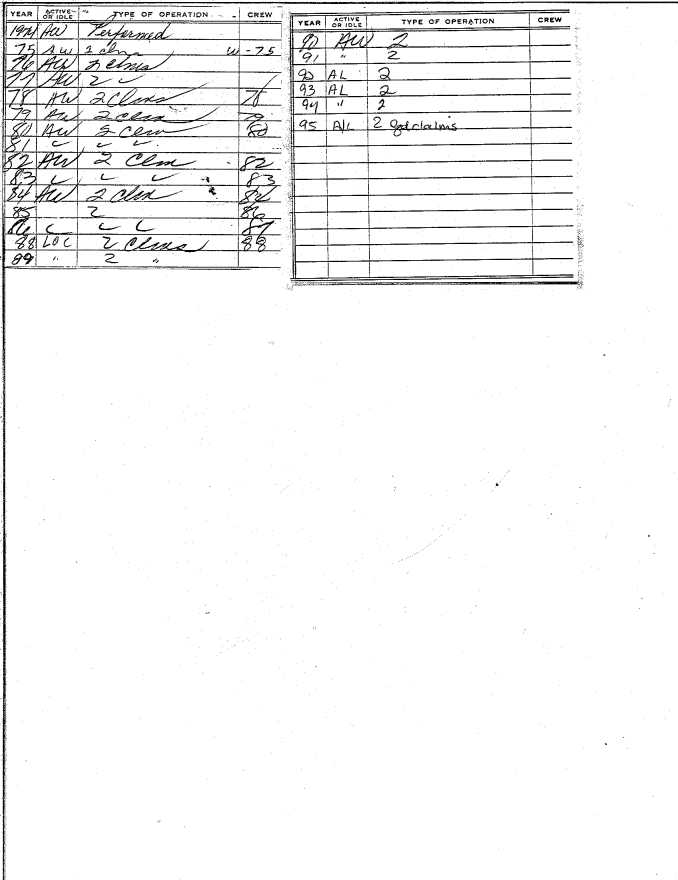 YEAR ACTIVE OR IDLE TYPE OF OPERATION CREW
1974 AW Performed
75 AW 2 clms W-75
76 AW 2 clms
77 AW 2 "
78 AW 2 Clms 78
79 AW 2 clm 79
80 AW 2 Clm 80
81 " " "
82 AW 2 Clm 82
83 " " " 83
84 AW 2 Clm 84
85 2 86
86 " " " 87
88 LOC 2 Clms 88
89 " 2 "
YEAR ACTIVE OR IDLE TYPE OF OPERATION CREW
90 AW 2
91 " 2
92 AL 2
93 AL 2
94 " 2
95 A/L 2 claims